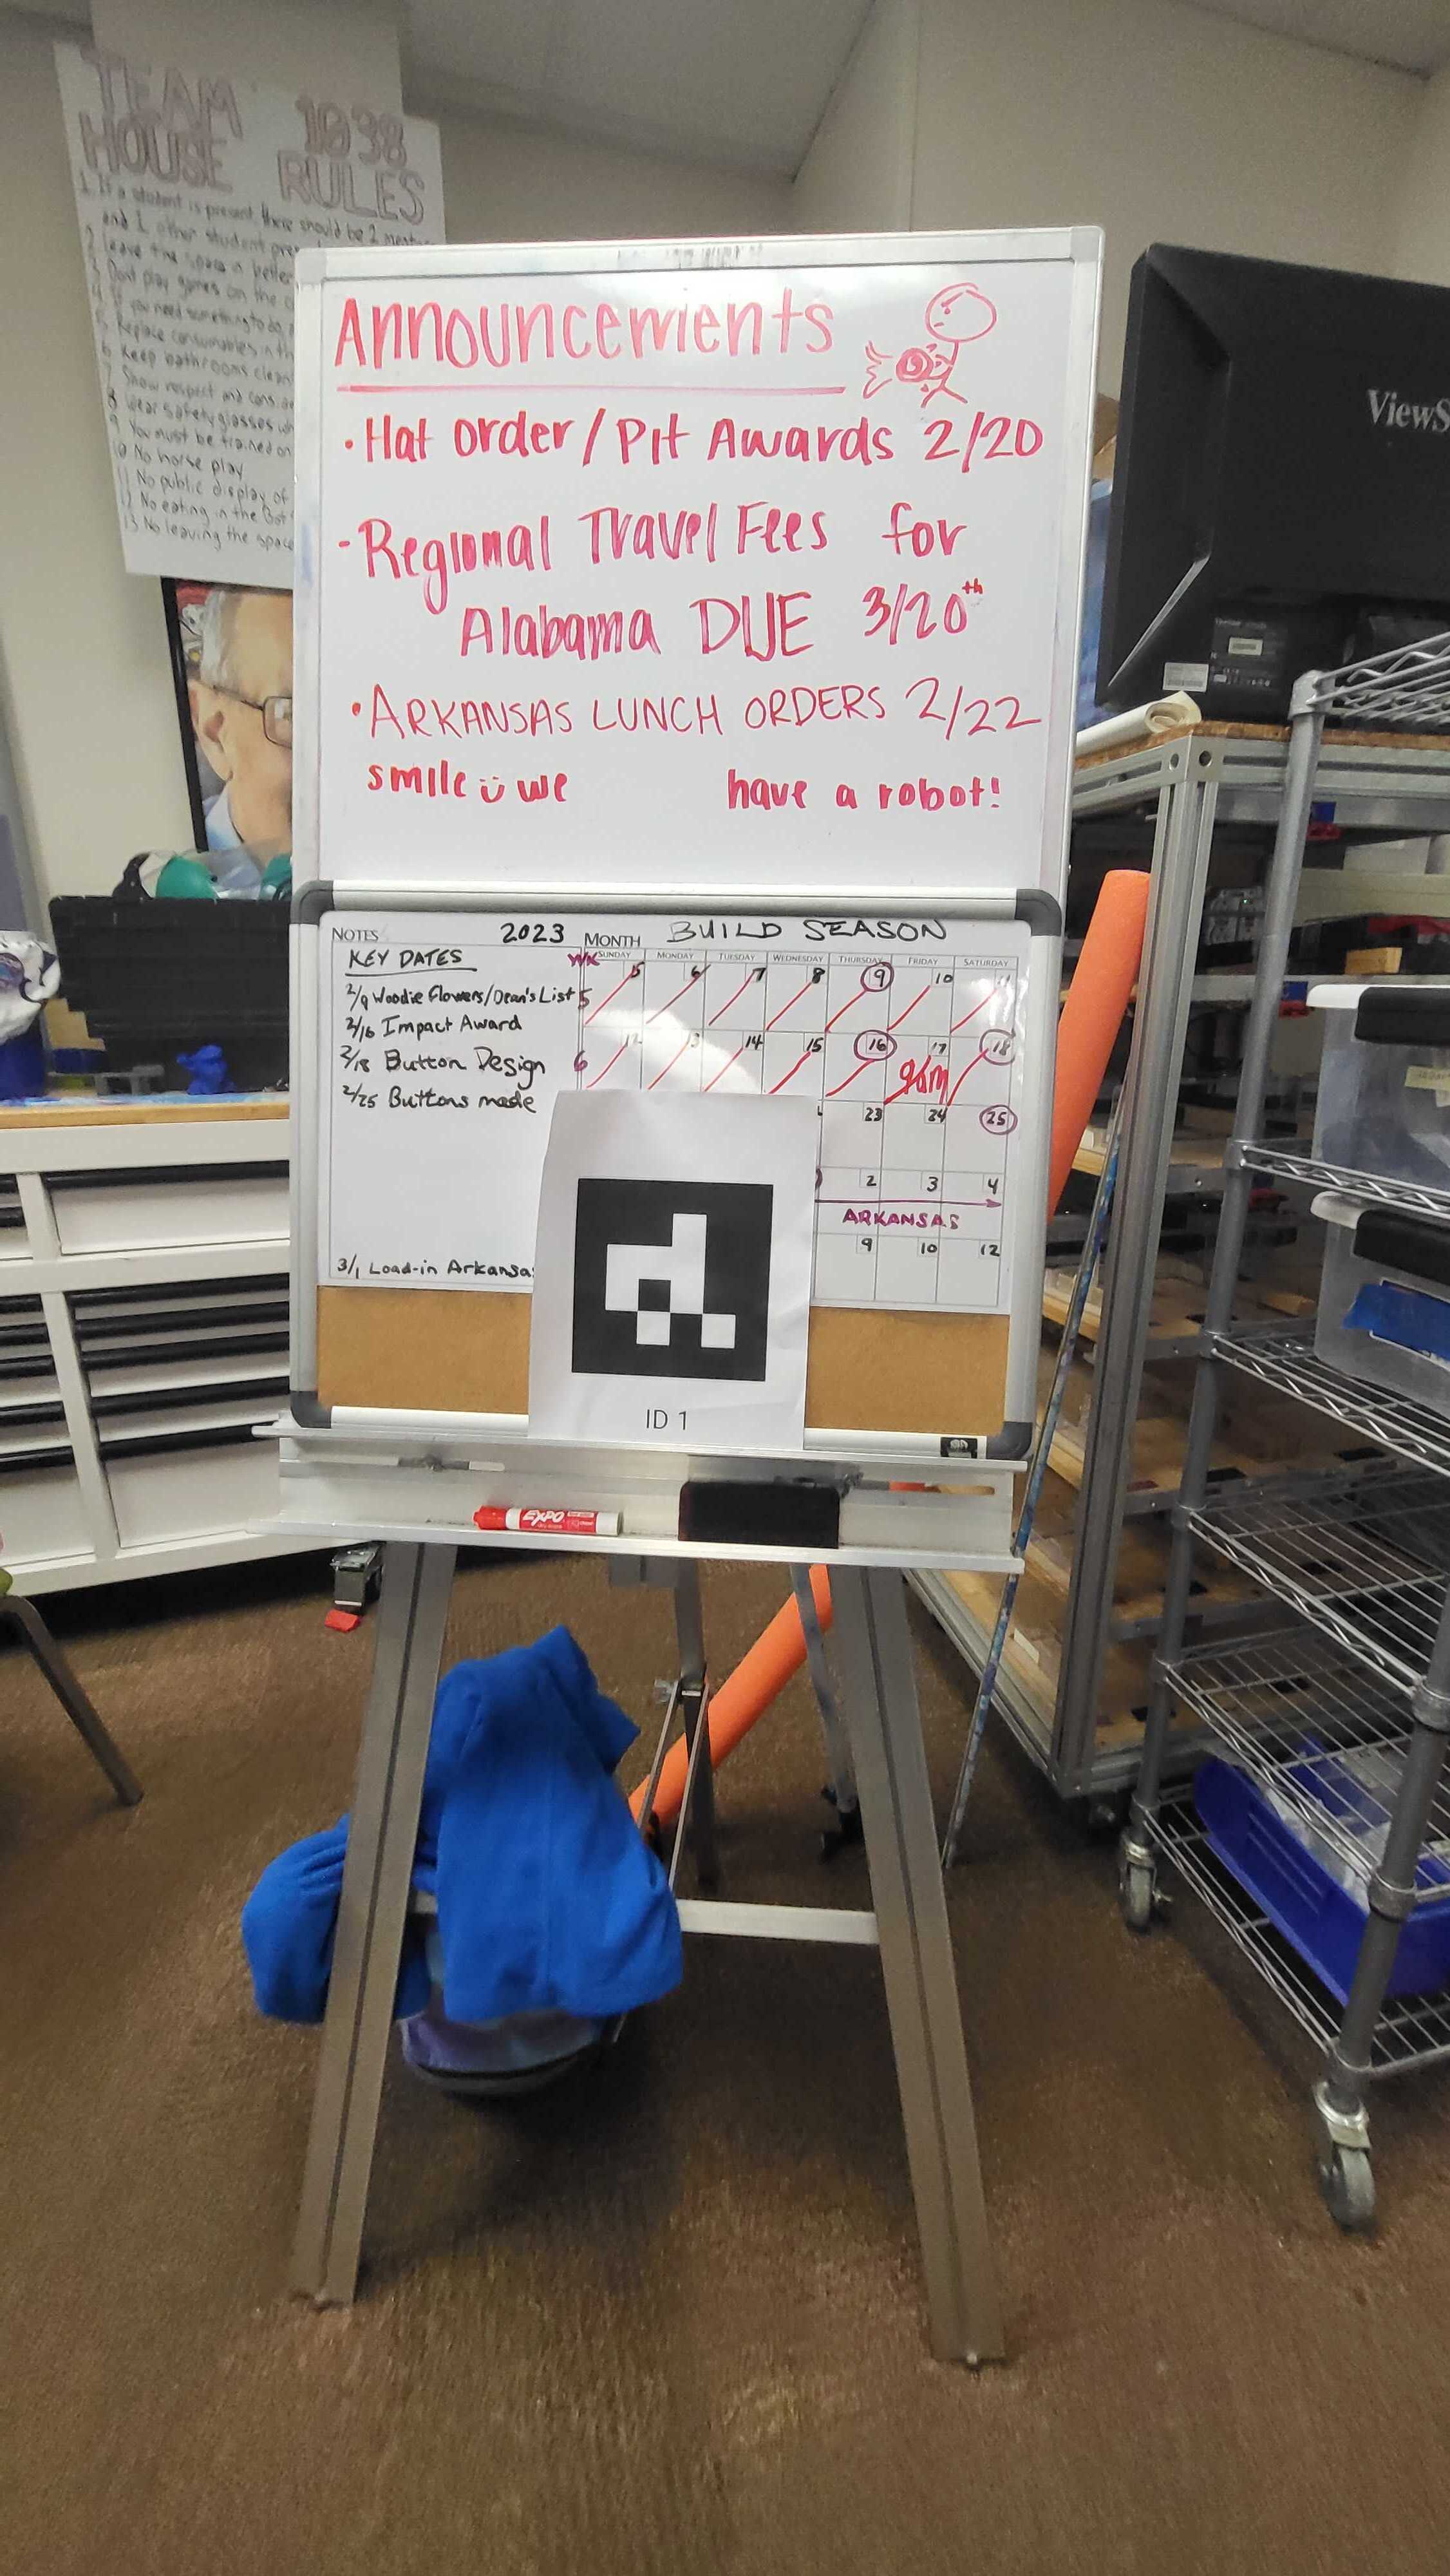 TEAM 1038
HOUSE RULES
1. If a student is present, there should be 2
and 1 other student
2. leave the space
3. Dont play games on the
4. If you need something to do,
5. Replace consumables in th
6. Keep bathrooms clean
7. Show respect and
8. Wear safety glasses
9. You must be trained on
10. No horse play
11. No public display of
12. No eating in the Bot
13. No leaving the space
Announcements
• Hat order / Pit Awards 2/20
- Regional Travel Fees for
Alabama DUE 3/20th
• ARKANSAS LUNCH ORDERS 2/22
smile we have a robot!
ViewS
NOTES 2023 MONTH BUILD SEASON
KEY DATES
2/9 Woodie Flowers/Dean's List
2/16 Impact Award
2/18 Button Design
2/25 Buttons made
3/1 Load-in Arkansas
WK SUNDAY MONDAY TUESDAY WEDNESDAY THURSDAY FRIDAY SATURDAY
5 5 6 7 8 9 10 11
6 12 13 14 15 16 17 18
9am
23 24 25
2 3 4
ARKANSAS
9 10 12
ID 1
EXPO